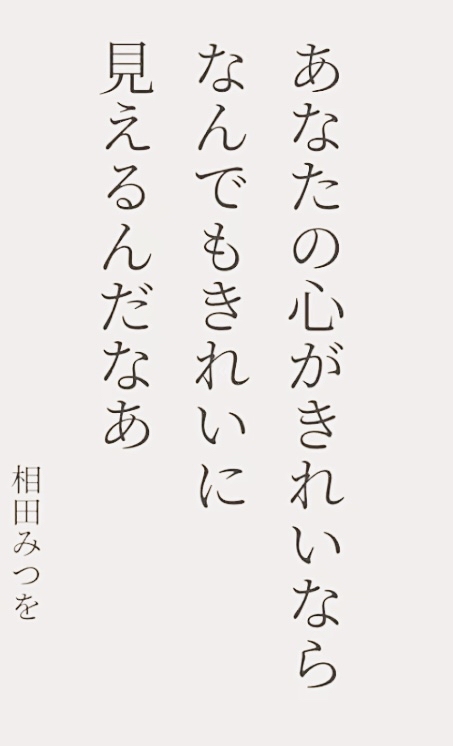 あなたの心がきれいなら
なんでもきれいに
見えるんだなあ
相田みつを